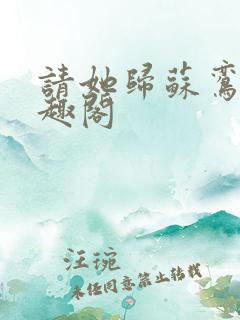 請她歸蘇鸞
趣閣
汪琬
未经同意禁止转载